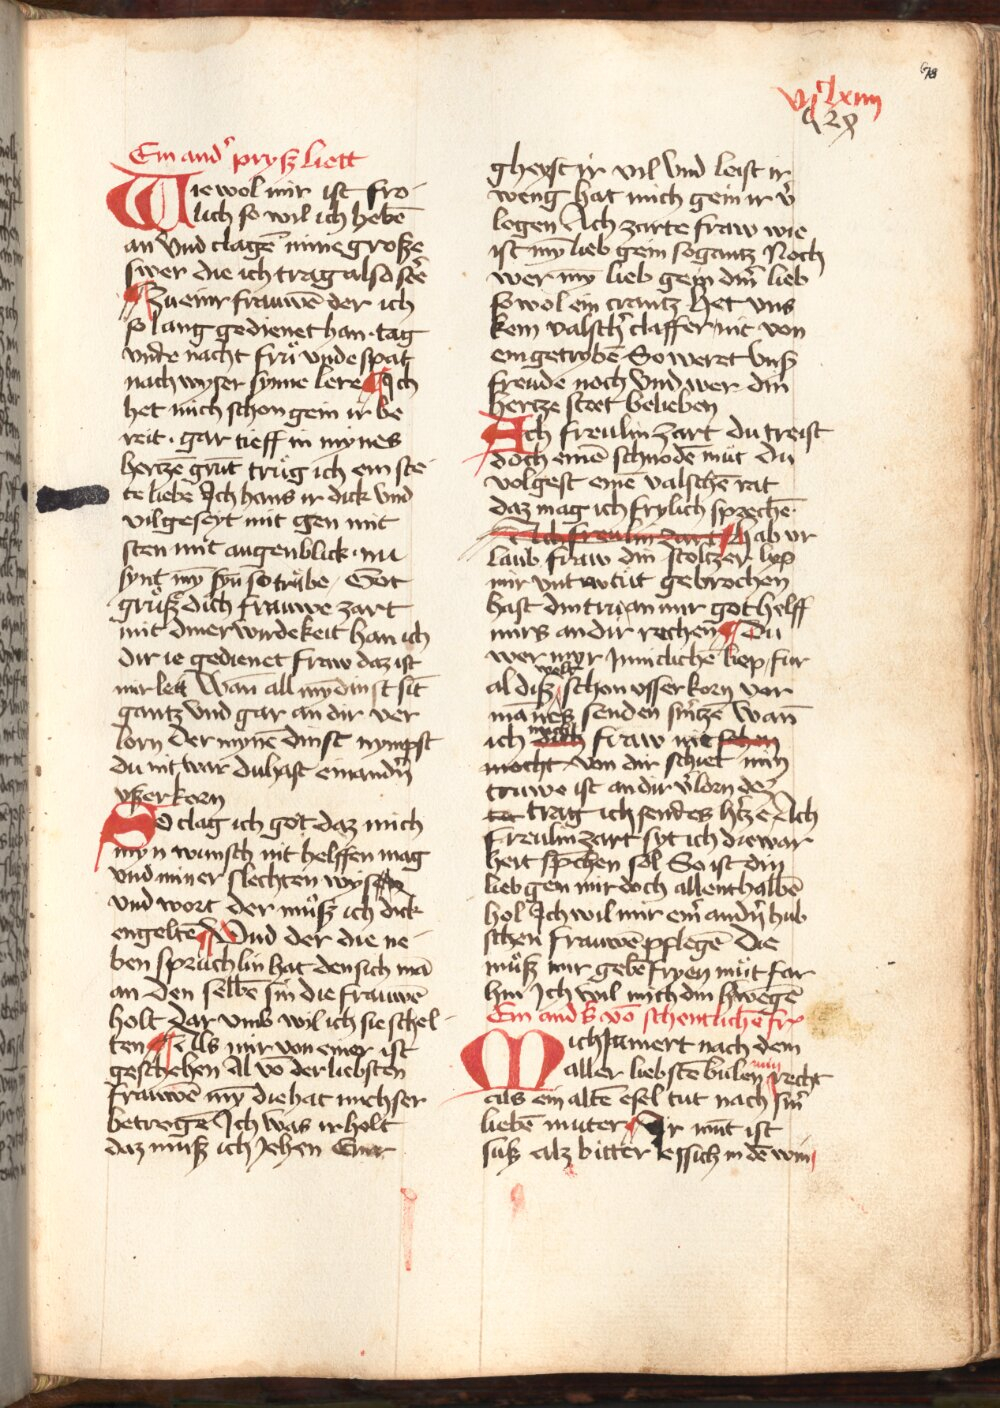 78
vj lxiiij
Ein and' prysz liett
Wie wol mir ist fro-
lich so wil ich hebē
an Vnd clagē mine große
swer die ich trag also sē
Zu einr frauwē der ich
so lang gedienet han · tag
vnde nacht frů vnde spat
nach wyser synne lere Ich
het mich schon gein ir be
reit · gar tieff in mynes
hertzē grūt trůg ich ein ste-
te liebe Ich hans ir dick vnd
vil geseyt mit gen mit
sten mit augenblick · nu
synt mȳ syn̄ so trůbe / Got
grůsz dich frauwe zart
mit diner wirdekeit han ich
dir ie gedienet fraw daz ist
mir leit Wan̄ all mȳ dinst sit
gantz vnd gar an dir ver
lorn Der mynē dinst nympst
du nit war du hast ein andn̄
vßerkorn
So clag ich got daz mich
myn wunsch nit helffen mag
vnd miner slechten wyse
vnd wort der můsz ich dick
engeltē Vnd der die ne-
ben sprůchlin hat den sich mā
an den selbē sin die frauwē
holt Dar vmb wil ich sie schel-
ten Als mir von einer ist
geschehen Al vō der liebsten
frauwē mȳ die hat mich ser
betrogē Ich was ir holt
daz můsz ich Jehen Einer
gheyst ir vil vnd leist ir
weng hat mich gein ir v'
logen Ach zarte fraw wie
ist mȳ lieb gein so gantz Noch
wer mȳ lieb gein dinr lieb
so wol ein crantz Het vns
kein valsch' claffer nit von
ein getrybē So weret vnsz
freude noch Vnd wer din
hertze stet belieben
Ach freulin zart du treist
doch einē schnode můt Du
volgest einē valschē rat
daz mag ich frylich sprechē
Ach freulin zart Hab vr
laub fraw din stoltzer lyp
mir vntrw tůt gebrochen
hast din tru an mir got helff
mirs an dir rechen Du
wer myr Inniclichē liep fur
al disz welt schon vsserkorn vor
mānes senden smtze Wan̄
ich mocht fraw nit schon
mocht von dir schiet min
truwe ist an dir v'lorn dez
trag ich sendes h'tze Ach
freulin zart syt ich die war
heit sp'chen sol So ist din
lieb gen mir doch allenthalbē
hol Ich wil mir einr andn̄ hub
schen frauwē pflegē Die
můsz mir gebē fryen můt far
hin Ich wil mich din h'wegē
Ein and's vō schentlichē fr
Mich Jamert nach dem
aller liebstē bulen min recht
als ein altē esel tut nach sinr
liebē muter Ir můt ist
susz alz bitter essich in dē win